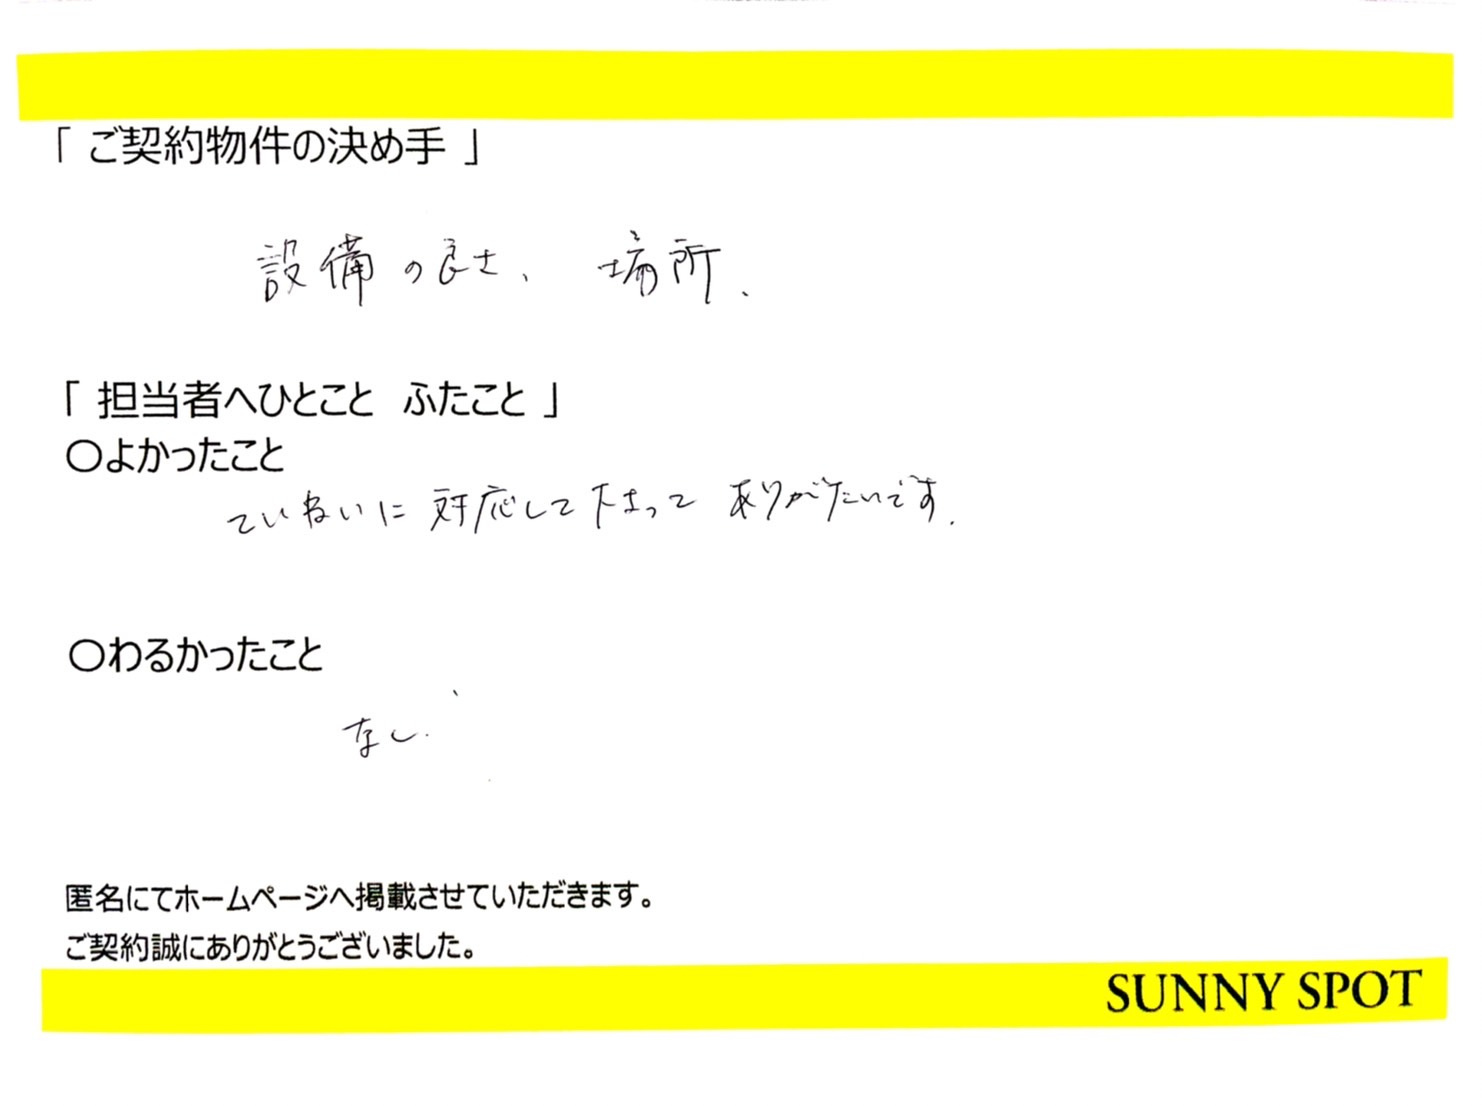 「 ご契約物件の決め手 」
設備の良さ、 場所.
「 担当者へひとこと ふたこと 」
○よかったこと
ていねいに 対応して下さって ありがたいです.
○わるかったこと
なし.
匿名にてホームページへ掲載させていただきます。
ご契約誠にありがとうございました。
SUNNY SPOT